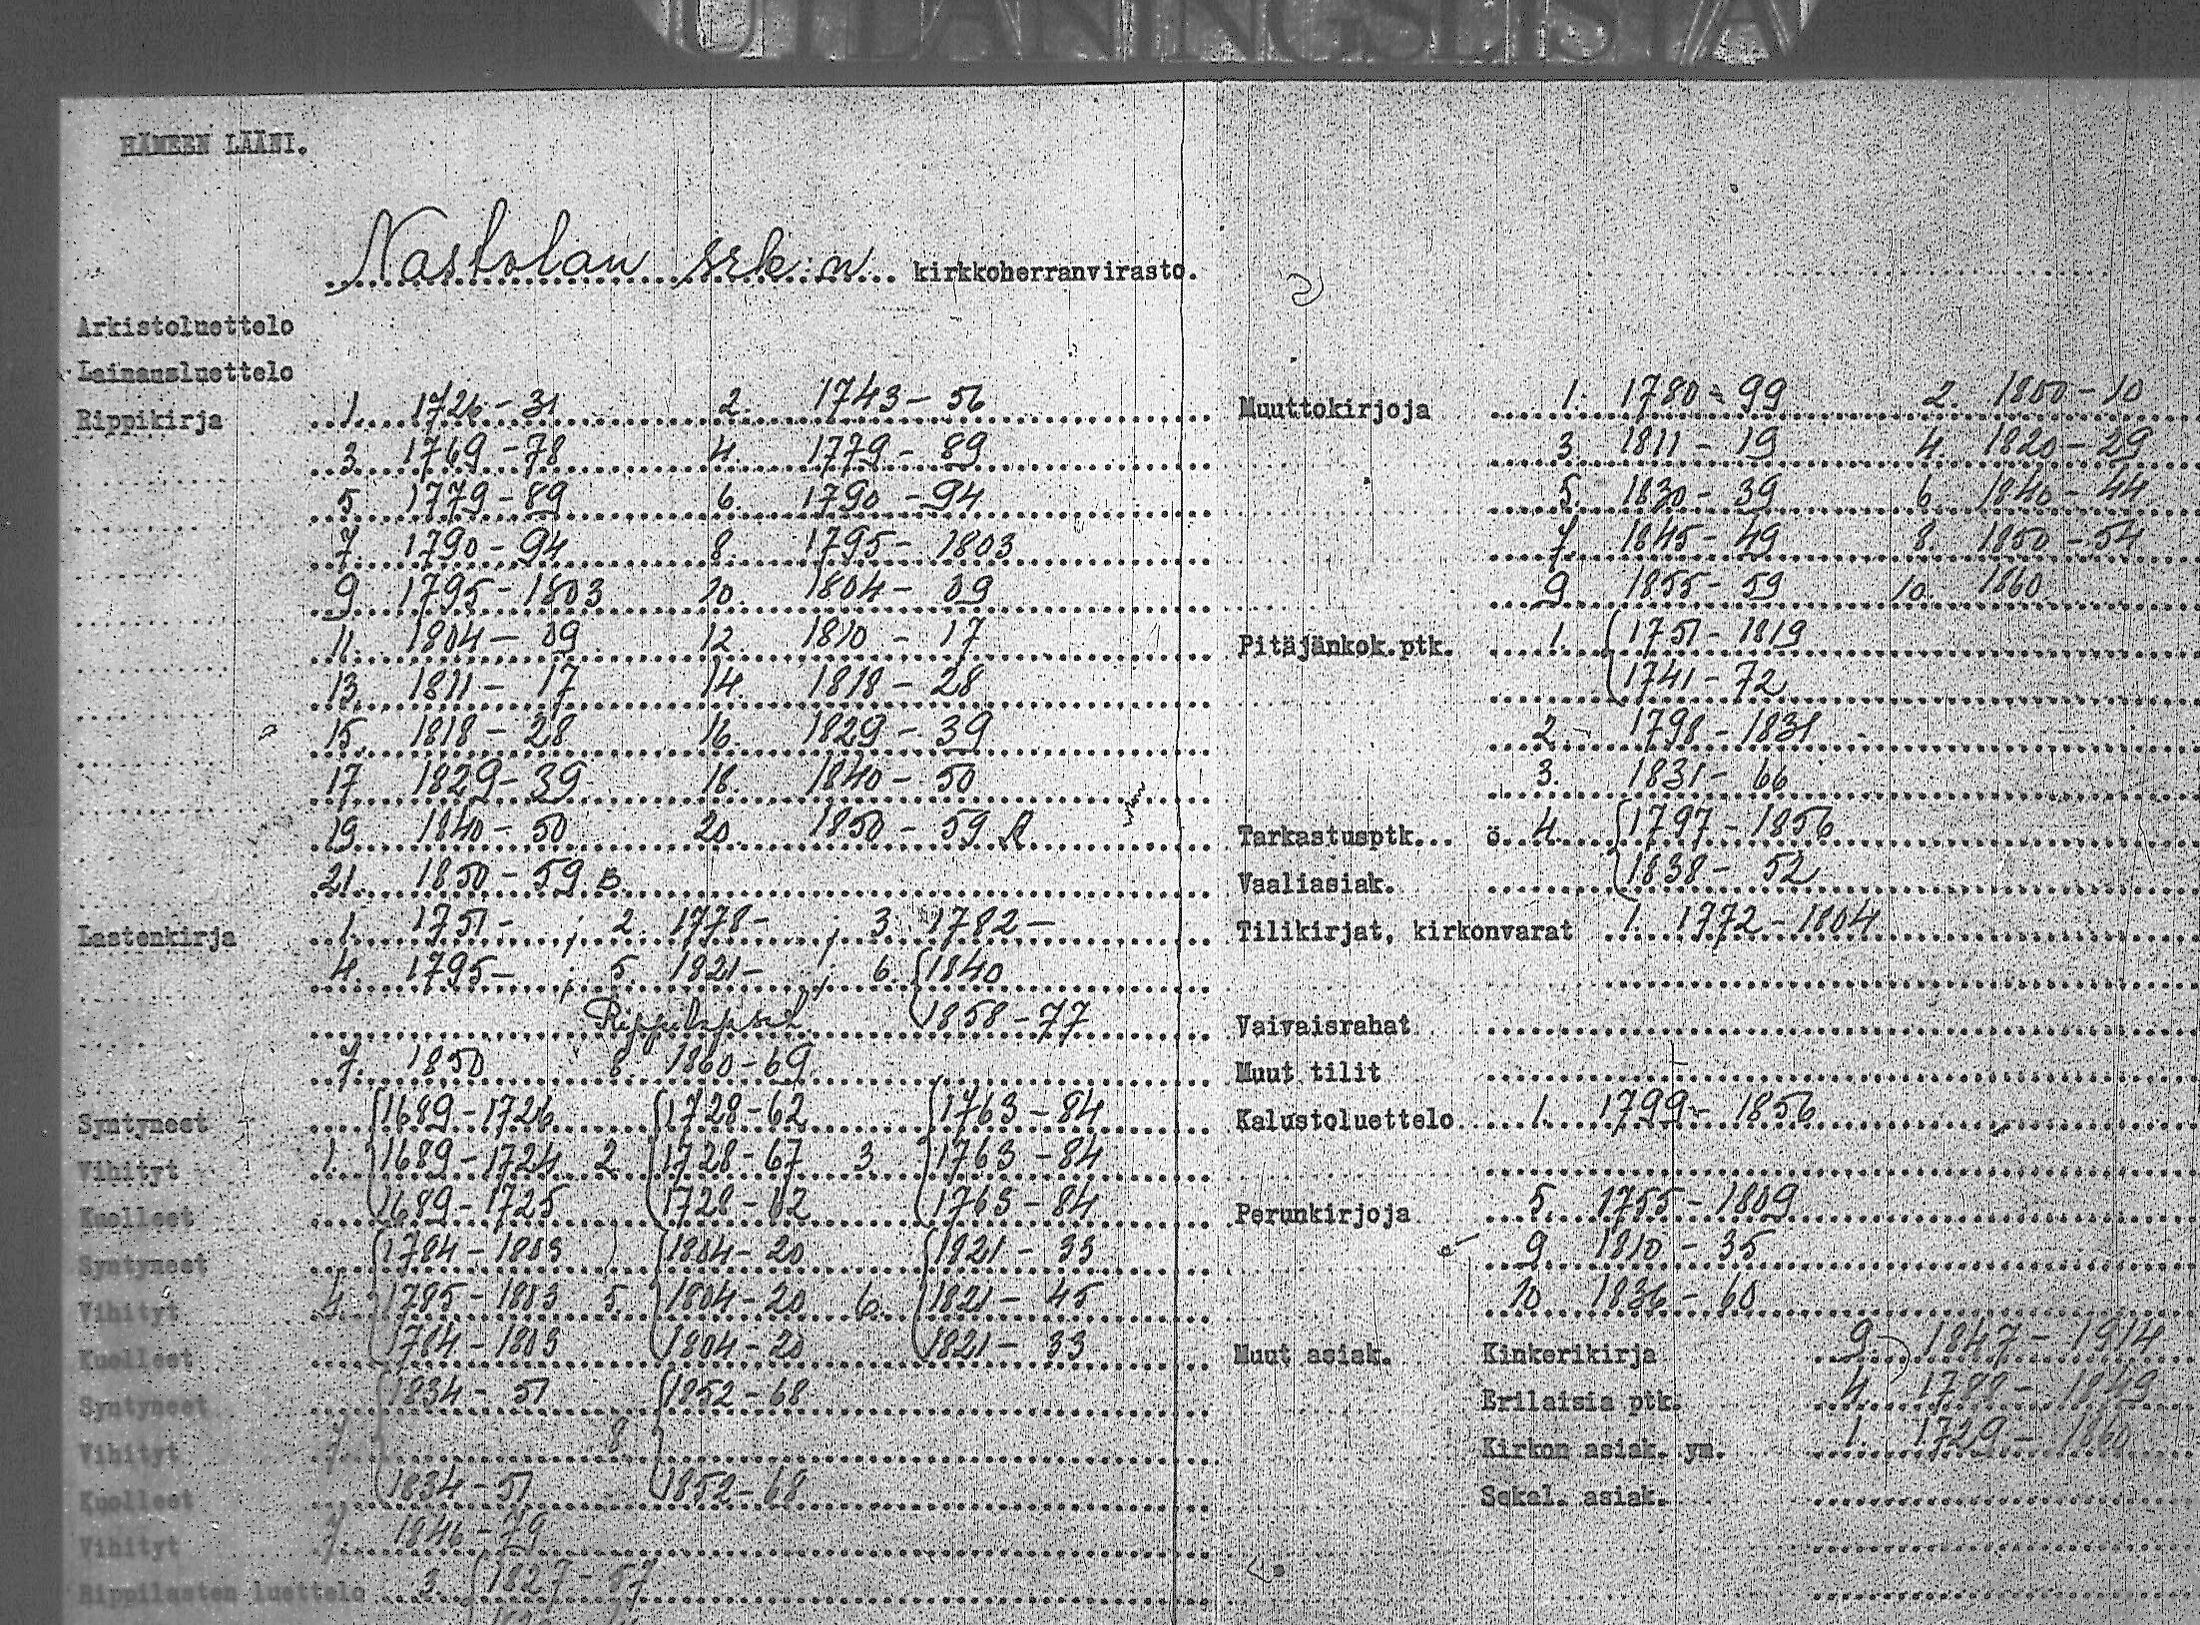 UTLÅNINGSLISTA
HÄMEEN LÄÄNI.
Nastolan srk:n kirkkoherranvirasto.
Arkistoluettelo
Lainausluettelo
Rippikirja 1. 1726-31 2. 1743-56
3. 1769-78 4. 1779-89
5. 1779-89 6. 1790-94
7. 1790-94 8. 1795-1803
9. 1795-1803 10. 1804-09
11. 1804-09 12. 1810-17
13. 1811-17 14. 1818-28
15. 1818-28 16. 1829-39
17. 1829-39 18. 1840-50
19. 1840-50 20. 1850-59
21. 1850-59 B.
Lastenkirja 1. 1751- ; 2. 1778- ; 3. 1782-
4. 1795- ; 5. 1821- ; 6. 1840
Rippilapset 1858-77
7. 1850 8. 1860-69
Syntyneet 1689-1726 1728-62 1763-84
Vihityt 1. 1689-1724 2. 1728-67 3. 1763-84
Kuolleet 1689-1725 1728-62 1763-84
Syntyneet 1784-1803 1804-20 1821-33
Vihityt 4. 1785-1803 5. 1804-20 6. 1821-45
Kuolleet 1784-1803 1804-20 1821-33
Syntyneet 1834-51 1852-68
Vihityt 7. 8
Kuolleet 1834-51 1852-68
Vihityt 7. 1846-79
Rippilasten luettelo 3. 1827-57
Muuttokirjoja 1. 1780-99 2. 1800-10
3. 1811-19 4. 1820-29
5. 1830-39 6. 1840-44
7. 1845-49 8. 1850-54
9 1855-59 10. 1860
Pitäjänkok.ptk. 1. 1751-1819
1741-72
2 1798-1831
3. 1831-66
Tarkastusptk... ö 4. 1797-1856
Vaaliasiak. 1838-52
Tilikirjat, kirkonvarat 1. 1772-1804
Vaivaisrahat
Muut tilit
Kalustoluettelo 1. 1799-1856
Perunkirjoja 5. 1755-1809
9 1810-35
10 1836-60
Muut asiak. Kinkerikirja 9. 1847-1914
Erilaisia ptk. 4. 1788-1849
Kirkon asiak. ym. 1. 1729-1860
Sekal. asiak.